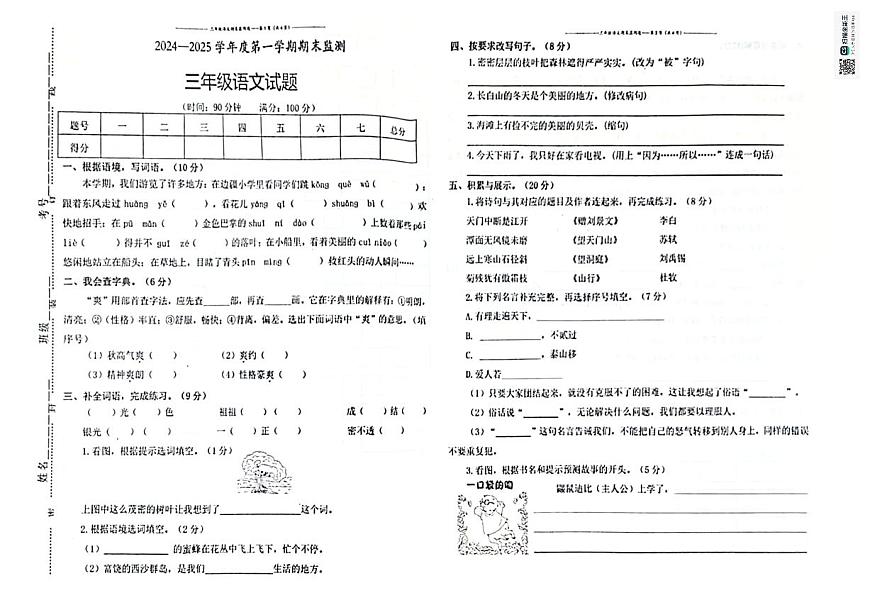 2024—2025学年度第一学期期末监测
三年级语文试题
（时间：90分钟 满分：100分）
题号 一 二 三 四 五 六 七 总分
得分
一、根据语境，写词语。（10分）
本学期，我们游览了许多地方：在边疆小学里看同学们跳kǒng què wǔ（ ）；
跟着东风走过huāng yě（ ），看花儿yáng qǐ（ ）shuāng bì（ ）欢
快地招手；在pū mǎn（ ）金色巴掌的shuǐ ní dào（ ）上数着那些pái
liè（ ）得并不guī zé（ ）的落叶；在小船里，看着美丽的cuì niǎo（ ）
悠闲地站立在船头；在草地上，目睹了青头pīn mìng（ ）救红头的动人瞬间……
二、我会查字典。（6分）
“爽”用部首查字法，应先查____部，再查____画。它在字典里的解释有：①明朗，
清亮；②（性格）率直；③舒服，畅快；④背离，偏差。选出下面词语中“爽”的意思。（填
序号）
（1）秋高气爽（ ） （2）爽约（ ）
（3）精神爽朗（ ） （4）性格豪爽（ ）
三、补全词语，完成练习。（9分）
（ ）光（ ）色 祖祖（ ）（ ） 成（ ）结（ ）
银光（ ）（ ） 一（ ）正（ ） 密不透（ ）
1.看图，根据提示选词填空。（1分）
上图中这么茂密的树叶让我想到了____________这个词。
2.根据语境选词填空。（2分）
（1）__________ 的蜜蜂在花丛中飞上飞下，忙个不停。
（2）富饶的西沙群岛，是我们__________生活的地方。
姓名
班级
考号
四、按要求改写句子。（8分）
1.密密层层的枝叶把森林遮得严严实实。(改为“被”字句)
2.长白山的冬天是个美丽的地方。(修改病句)
3.海滩上有捡不完的美丽的贝壳。(缩句)
4.今天下雨了，我只好在家看电视。(用上“因为……所以……”连成一句话)
五、积累与展示。（20分）
1.将诗句与其对应的题目及作者连起来，再完成练习。（8分）
天门中断楚江开 《赠刘景文》 李白
潭面无风镜未磨 《望天门山》 苏轼
远上寒山石径斜 《望洞庭》 刘禹锡
菊残犹有傲霜枝 《山行》 杜牧
2.将下列名言补充完整，再选择序号填空。（7分）
A.有理走遍天下，____________________
B. __________，不贰过
C. __________，泰山移
D.爱人若____________________
（1）只要大家团结起来，就没有克服不了的困难，这让我想起了俗语“______”。
（2）俗话说“______”，无论解决什么问题，我们都要以理服人。
（3）“______”这句名言告诫我们，不能把自己的怒气转移到别人身上，同样的错误
不要重复犯。
3.看图，根据书名和提示预测故事的开头。（5分）
一口袋的吻
鼹鼠迪比（主人公）上学了，____________________